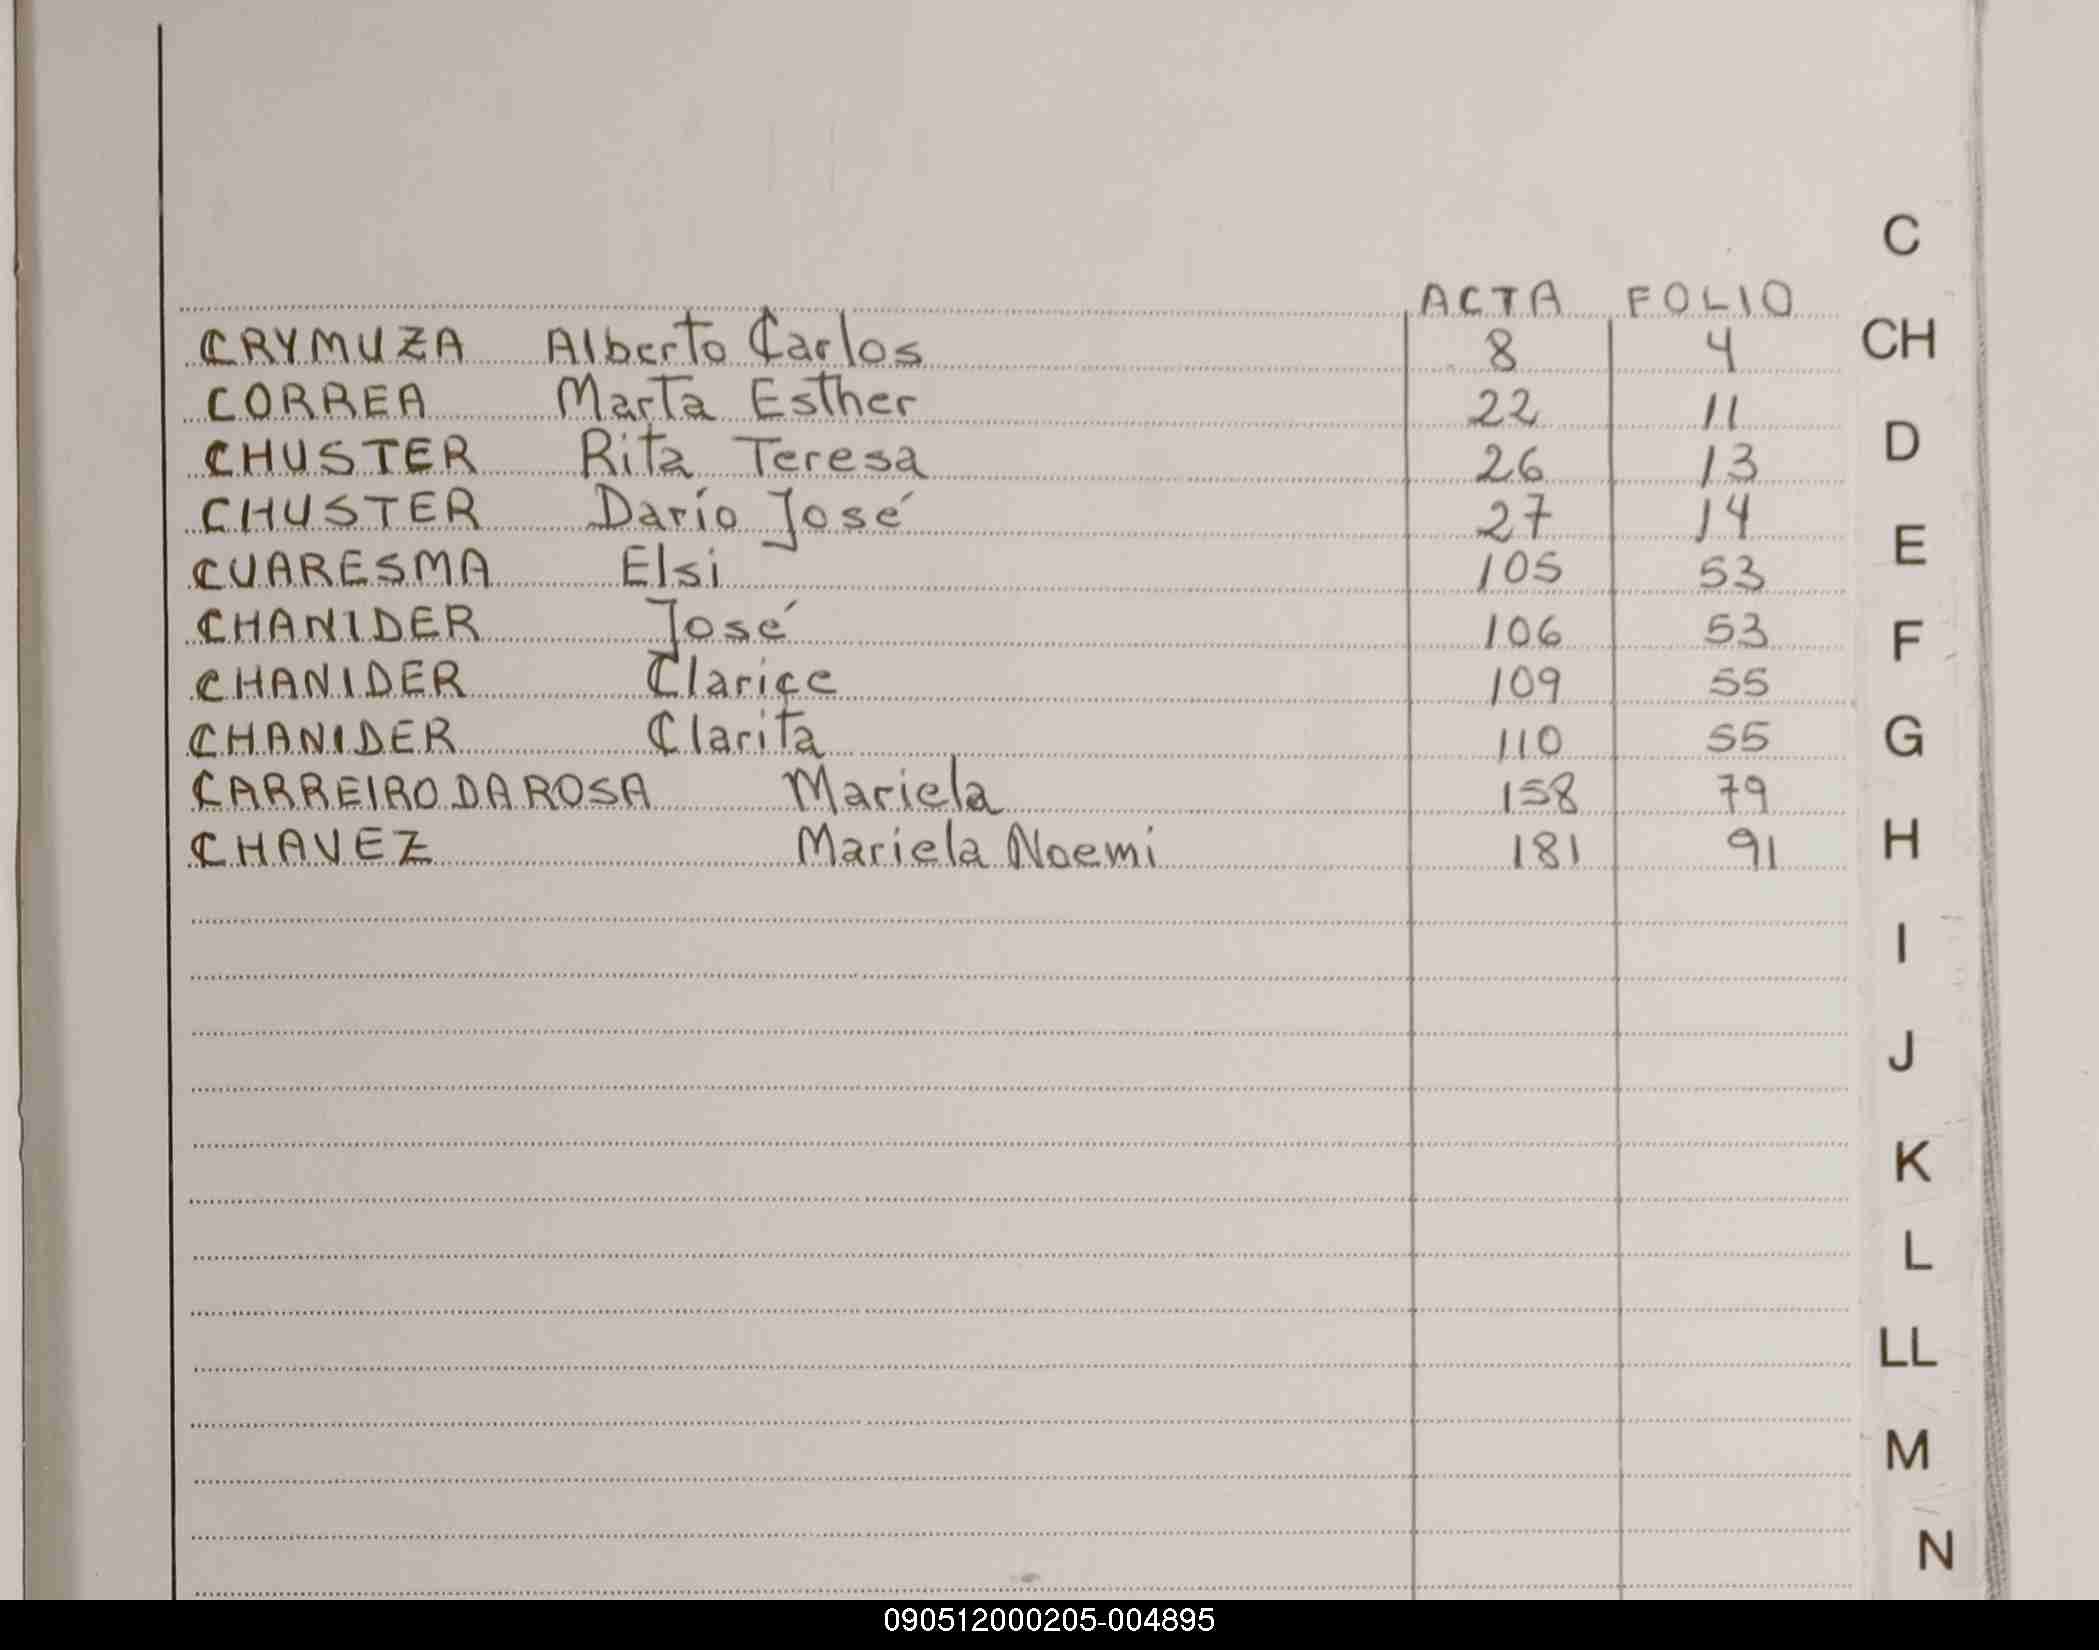 ACTA FOLIO
CRYMUZA Alberto Carlos 8 4
CORREA Marta Esther 22 11
CHUSTER Rita Teresa 26 13
CHUSTER Darío José 27 14
CUARESMA Elsi 105 53
CHANIDER José 106 53
CHANIDER Clarice 109 55
CHANIDER Clarita 110 55
CARREIRO DA ROSA Mariela 158 79
CHAVEZ Mariela Noemi 181 91
C
CH
D
E
F
G
H
I
J
K
L
LL
M
N
090512000205-004895